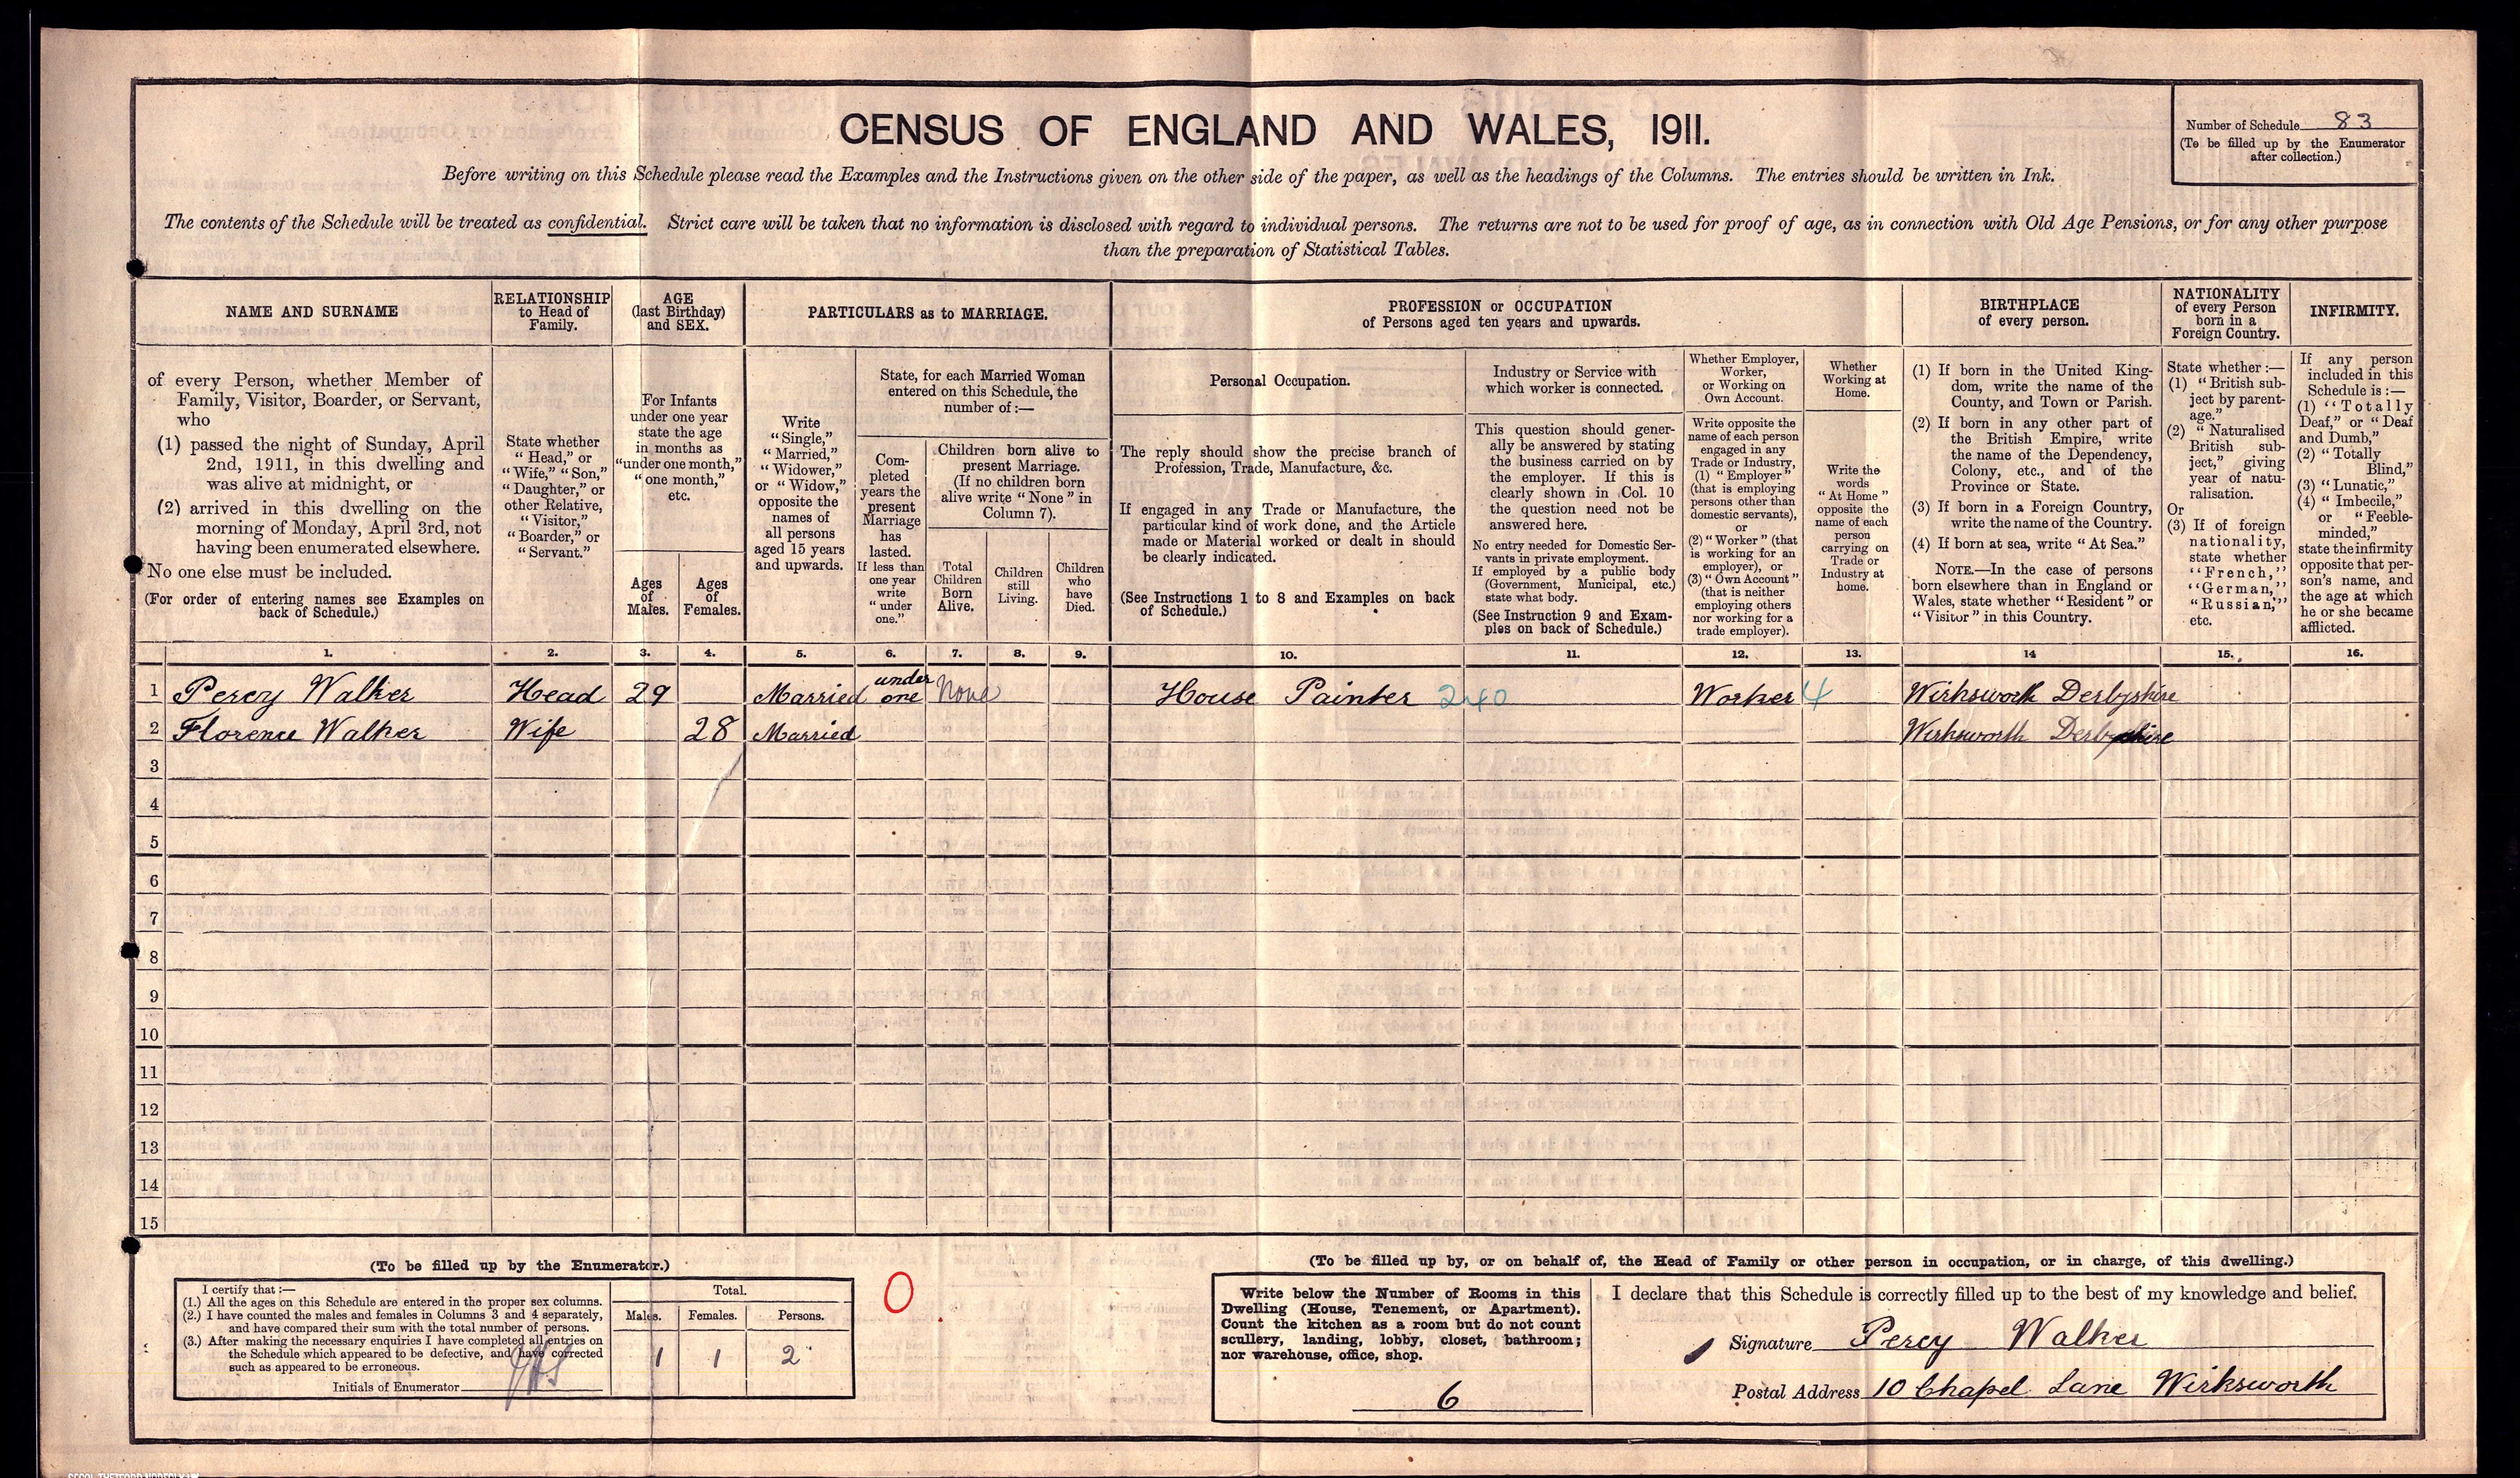 CENSUS OF ENGLAND AND WALES, 1911.
Number of Schedule 83
(To be filled up by the Enumerator
after collection.)
Before writing on this Schedule please read the Examples and the Instructions given on the other side of the paper, as well as the headings of the Columns. The entries should be written in Ink.
The contents of the Schedule will be treated as confidential. Strict care will be taken that no information is disclosed with regard to individual persons. The returns are not to be used for proof of age, as in connection with Old Age Pensions, or for any other purpose
than the preparation of Statistical Tables.
NAME AND SURNAME
of every Person, whether Member of
Family, Visitor, Boarder, or Servant,
who
(1) passed the night of Sunday, April
2nd, 1911, in this dwelling and
was alive at midnight, or
(2) arrived in this dwelling on the
morning of Monday, April 3rd, not
having been enumerated elsewhere.
No one else must be included.
(For order of entering names see Examples on
back of Schedule.)
RELATIONSHIP
to Head of
Family.
State whether
"Head," or
"Wife," "Son,"
"Daughter," or
other Relative,
"Visitor,"
"Boarder," or
"Servant."
AGE
(last Birthday)
and SEX.
For Infants
under one year
state the age
in months as
"under one month,"
"one month,"
etc.
Ages
of
Males.
Ages
of
Females.
PARTICULARS as to MARRIAGE.
Write
"Single,"
"Married,"
"Widower,"
or "Widow,"
opposite the
names of
all persons
aged 15 years
and upwards.
State, for each Married Woman
entered on this Schedule, the
number of :—
Com-
pleted
years the
present
Marriage
has
lasted.
If less than
one year
write
"under
one."
Children born alive to
present Marriage.
(If no children born
alive write "None" in
Column 7).
Total
Children
Born
Alive.
Children
still
Living.
Children
who
have
Died.
PROFESSION or OCCUPATION
of Persons aged ten years and upwards.
Personal Occupation.
The reply should show the precise branch of
Profession, Trade, Manufacture, &c.
If engaged in any Trade or Manufacture, the
particular kind of work done, and the Article
made or Material worked or dealt in should
be clearly indicated.
(See Instructions 1 to 8 and Examples on back
of Schedule.)
Industry or Service with
which worker is connected.
This question should gener-
ally be answered by stating
the business carried on by
the employer. If this is
clearly shown in Col. 10
the question need not be
answered here.
No entry needed for Domestic Ser-
vants in private employment.
If employed by a public body
(Government, Municipal, etc.)
state what body.
(See Instruction 9 and Exam-
ples on back of Schedule.)
Whether Employer,
Worker,
or Working on
Own Account.
Write opposite the
name of each person
engaged in any
Trade or Industry,
(1) "Employer"
(that is employing
persons other than
domestic servants),
or
(2) "Worker" (that
is working for an
employer), or
(3) "Own Account"
(that is neither
employing others
nor working for a
trade employer).
Whether
Working at
Home.
Write the
words
"At Home"
opposite the
name of each
person
carrying on
Trade or
Industry at
home.
BIRTHPLACE
of every person.
(1) If born in the United King-
dom, write the name of the
County, and Town or Parish.
(2) If born in any other part of
the British Empire, write
the name of the Dependency,
Colony, etc., and of the
Province or State.
(3) If born in a Foreign Country,
write the name of the Country.
(4) If born at sea, write "At Sea."
NOTE.—In the case of persons
born elsewhere than in England or
Wales, state whether "Resident" or
"Visitor" in this Country.
NATIONALITY
of every Person
born in a
Foreign Country.
State whether :—
(1) "British sub-
ject by parent-
age."
(2) "Naturalised
British sub-
ject," giving
year of natu-
ralisation.
Or
(3) If of foreign
nationality,
state whether
"French,"
"German,"
"Russian,"
etc.
INFIRMITY.
If any person
included in this
Schedule is :—
(1) "Totally
Deaf," or "Deaf
and Dumb,"
(2) "Totally
Blind,"
(3) "Lunatic,"
(4) "Imbecile,"
or "Feeble-
minded,"
state the infirmity
opposite that per-
son's name, and
the age at which
he or she became
afflicted.
1. 2. 3. 4. 5. 6. 7. 8. 9. 10. 11. 12. 13. 14 15. 16.
1 Percy Walker Head 29 Married under one None House Painter 240 Worker 4 Wirksworth Derbyshire
2 Florence Walker Wife 28 Married Wirksworth Derbyshire
3
4
5
6
7
8
9
10
11
12
13
14
15
(To be filled up by the Enumerator.)
I certify that :—
(1.) All the ages on this Schedule are entered in the proper sex columns.
(2.) I have counted the males and females in Columns 3 and 4 separately,
and have compared their sum with the total number of persons.
(3.) After making the necessary enquiries I have completed all entries on
the Schedule which appeared to be defective, and have corrected
such as appeared to be erroneous.
Initials of Enumerator
Total.
Males. Females. Persons.
1 1 2
0
(To be filled up by, or on behalf of, the Head of Family or other person in occupation, or in charge, of this dwelling.)
Write below the Number of Rooms in this
Dwelling (House, Tenement, or Apartment).
Count the kitchen as a room but do not count
scullery, landing, lobby, closet, bathroom;
nor warehouse, office, shop.
6
I declare that this Schedule is correctly filled up to the best of my knowledge and belief.
Signature Percy Walker
Postal Address 10 Chapel Lane Wirksworth